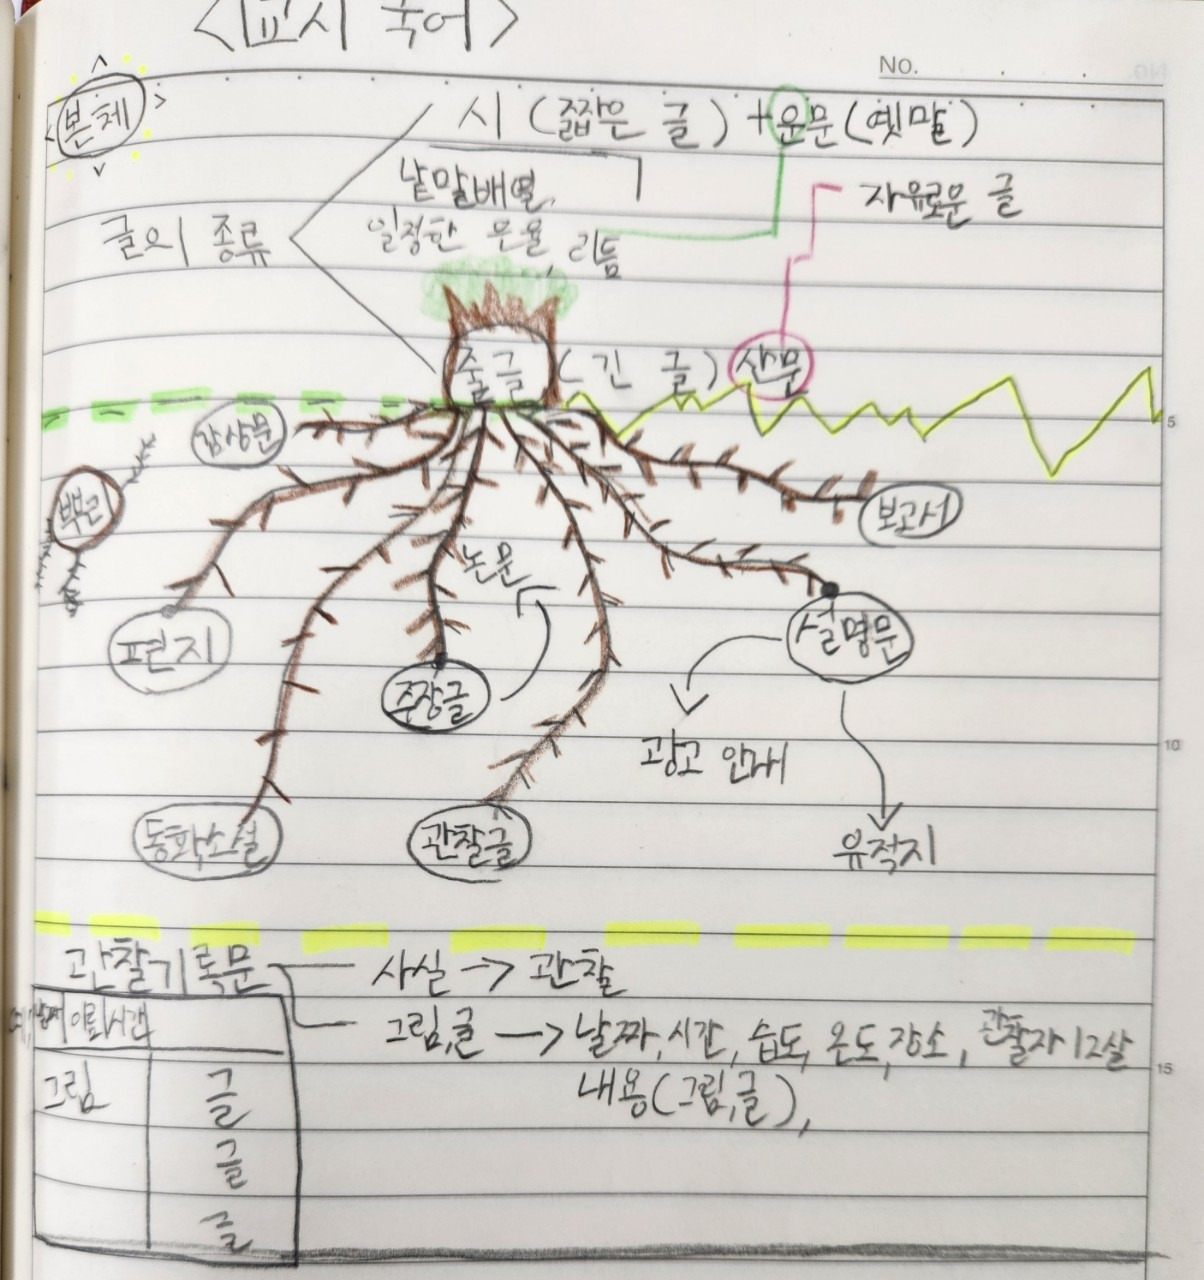 <교시 국어>
No.
본체
시 (짧은 글) + 운문 (옛말)
낱말배열,
자유로운 글
글의 종류
일정한 운율, 리듬
줄글 (긴 글) 산문
감상문
5
뿌리
보고서
논문
편지
설명문
주장글
광고 안내
10
동화소설
관찰글
유적지
관찰기록문
사실 → 관찰
날짜 이름 시간
그림,글 → 날짜, 시간, 습도, 온도, 장소, 관찰자 12살
15
그림 글
내용(그림,글),
글
글